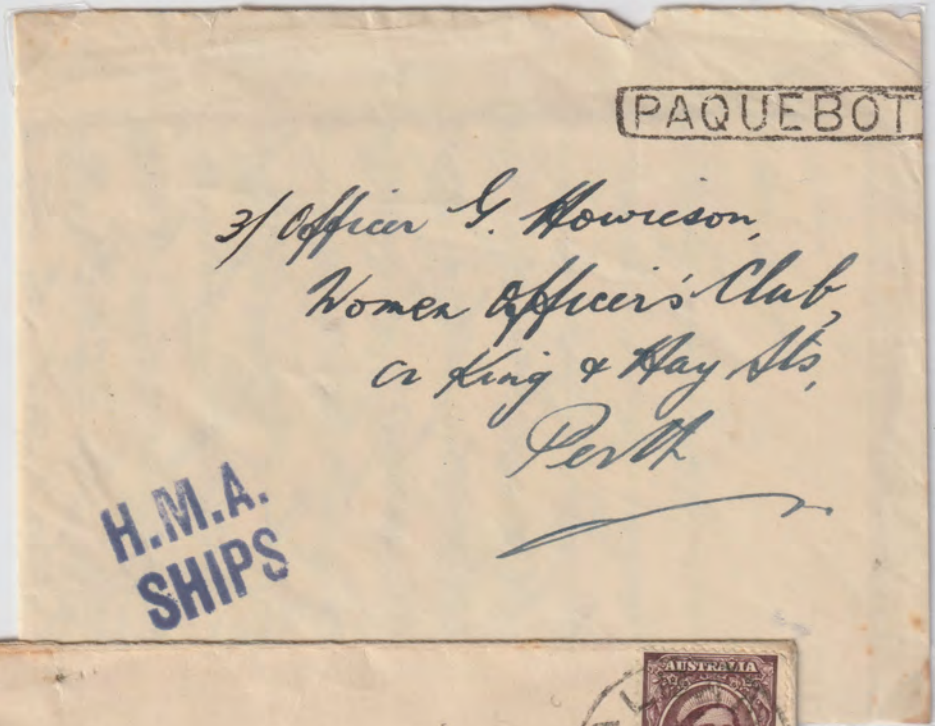 PAQUEBOT
3/ Officer G. Howieson,
Women Officer's Club,
cr King & Hay Sts,
Perth
H.M.A.
SHIPS
AUSTRALIA